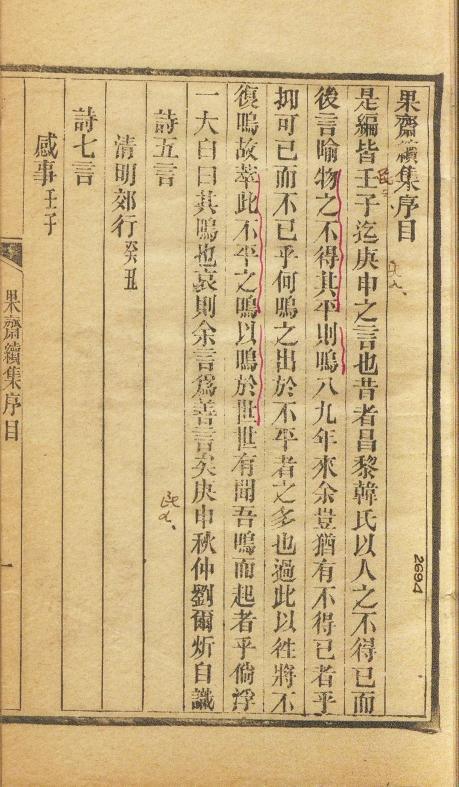 果齋續集序目
是編皆壬子迄庚申之言也昔者昌黎韓氏以人之不得已而
後言喻物之不得其平則鳴八九年來余豈猶有不得已者乎
抑可已而不已乎何鳴之出於不平者之多也過此以徃將不
復鳴故萃此不平之鳴以鳴於世世有聞吾鳴而起者乎倘浮
一大白曰其鳴也哀則余言爲善言矣庚申秋仲劉爾炘自識
詩五言
清明郊行癸丑
詩七言
感事壬子
果齋續集序目
一
民元
民九、
民九、
2694